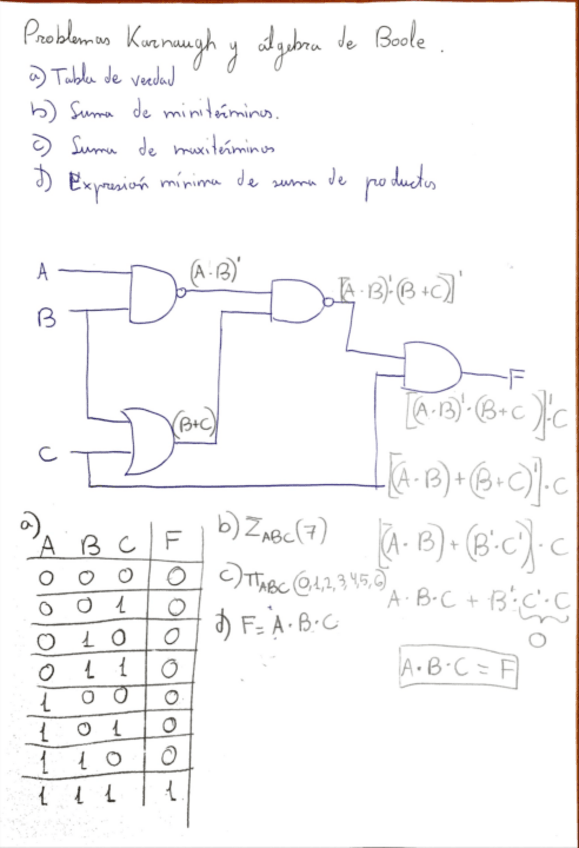 Problemas Karnaugh y álgebra de Boole.
a) Tabla de verdad
b) Suma de minitérminos.
c) Suma de maxitérminos
d) Expresión mínima de suma de productos
A
(A·B)'
B
[(A·B)'·(B+C)]'
F
(B+C)
C
[(A·B)'·(B+C)]'·C
[(A·B)+(B+C)']·C
[(A·B)+(B'·C')]·C
A·B·C + B'·C'·C
0
A·B·C = F
a)
A B C F
0 0 0 0
0 0 1 0
0 1 0 0
0 1 1 0
1 0 0 0
1 0 1 0
1 1 0 0
1 1 1 1
b) ΣABC(7)
c) πABC(0,1,2,3,4,5,6)
d) F= A·B·C